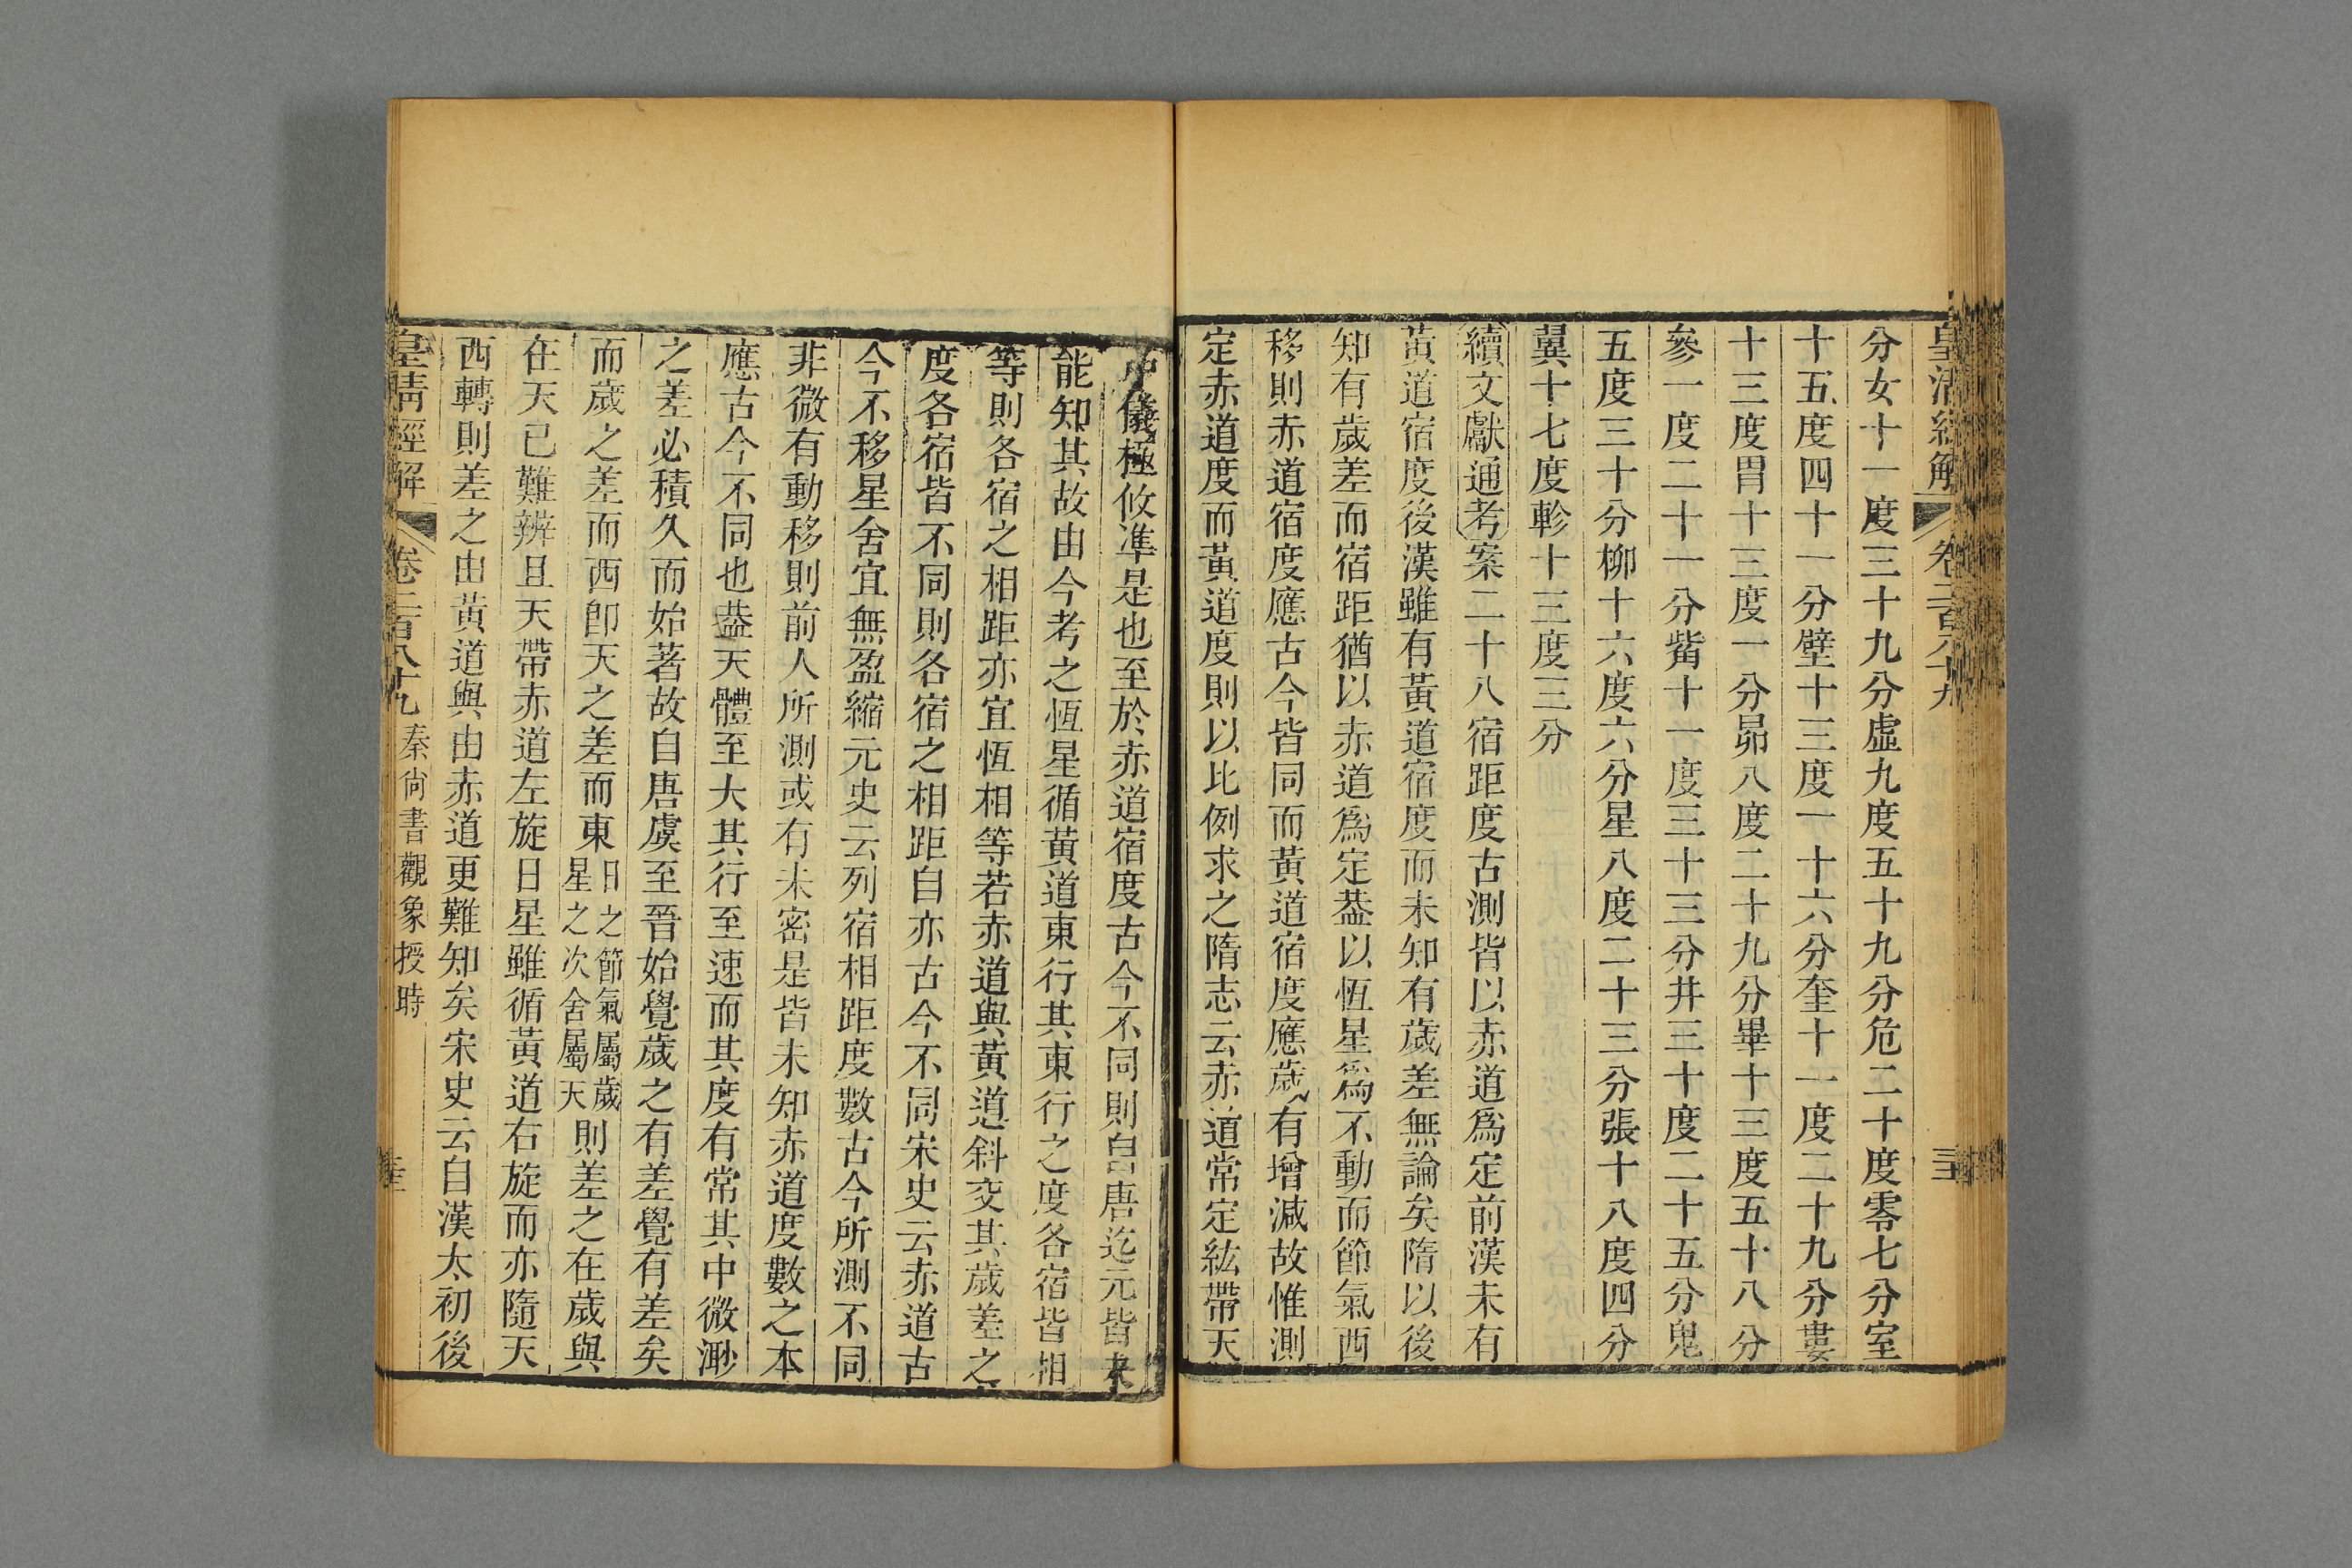 皇清經解 卷二百八十九
分女十一度三十九分虛九度五十九分危二十度零七分室
十五度四十一分壁十三度一十六分奎十一度二十九分婁
十三度胃十三度一分昴八度二十九分畢十三度五十八分
參一度二十一分觜十一度三十三分井三十度二十五分鬼
五度三十分柳十六度六分星八度二十三分張十八度四分
翼十七度軫十三度三分
續文獻通考案二十八宿距度古測皆以赤道爲定前漢未有
黃道宿度後漢雖有黃道宿度而未知有歲差無論矣隋以後
知有歲差而宿距猶以赤道爲定葢以恆星爲不動而節氣西
移則赤道宿度應古今皆同而黃道宿度應歲有增減故惟測
定赤道度而黃道度則以比例求之隋志云赤道常定紘帶天
中儀極攸準是也至於赤道宿度古今不同則自唐迄元皆未
能知其故由今考之恆星循黃道東行其東行之度各宿皆相
等則各宿之相距亦宜恆相等若赤道與黃道斜交其歲差之
度各宿皆不同則各宿之相距自亦古今不同宋史云赤道古
今不移星舍宜無盈縮元史云列宿相距度數古今所測不同
非微有動移則前人所測或有未密是皆未知赤道度數之本
應古今不同也葢天體至大其行至速而其度有常其中微渺
之差必積久而始著故自唐虞至晉始覺歲之有差覺有差矣
而歲之差而西卽天之差而東日之節氣屬歲星之次舍屬天則差之在歲與
在天已難辨且天帶赤道左旋日星雖循黃道右旋而亦隨天
西轉則差之由黃道與由赤道更難知矣宋史云自漢太初後
皇清經解 卷二百八十九 秦尙書觀象授時